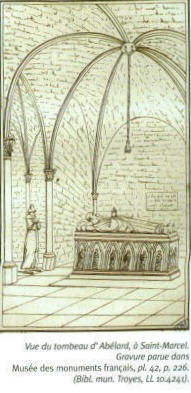 Vue du tombeau d'Abélard, à Saint-Marcel.
Gravure parue dans
Musée des monuments français, pl. 42, p. 226.
(Bibl. mun. Troyes, LL 10.4241).